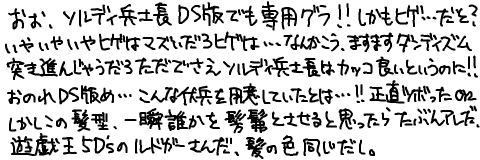 おお、ソルディ兵士長DS版でも専用グラ!!しかもヒゲ…だと?
いやいやいやヒゲはマズいだろヒゲは…なんかこう、ますますダンディズム
突き進んじゃうだろただでさえソルディ兵士長はカッコ良いというのに!!
おのれDS版め…こんな伏兵を用意していたとは…!!正直ツボったorz
しかしこの髪型、一瞬誰かを髣髴とさせると思ったらたぶんアレだ、
遊戯王5D'sのルドガーさんだ、髪の色同じだし。